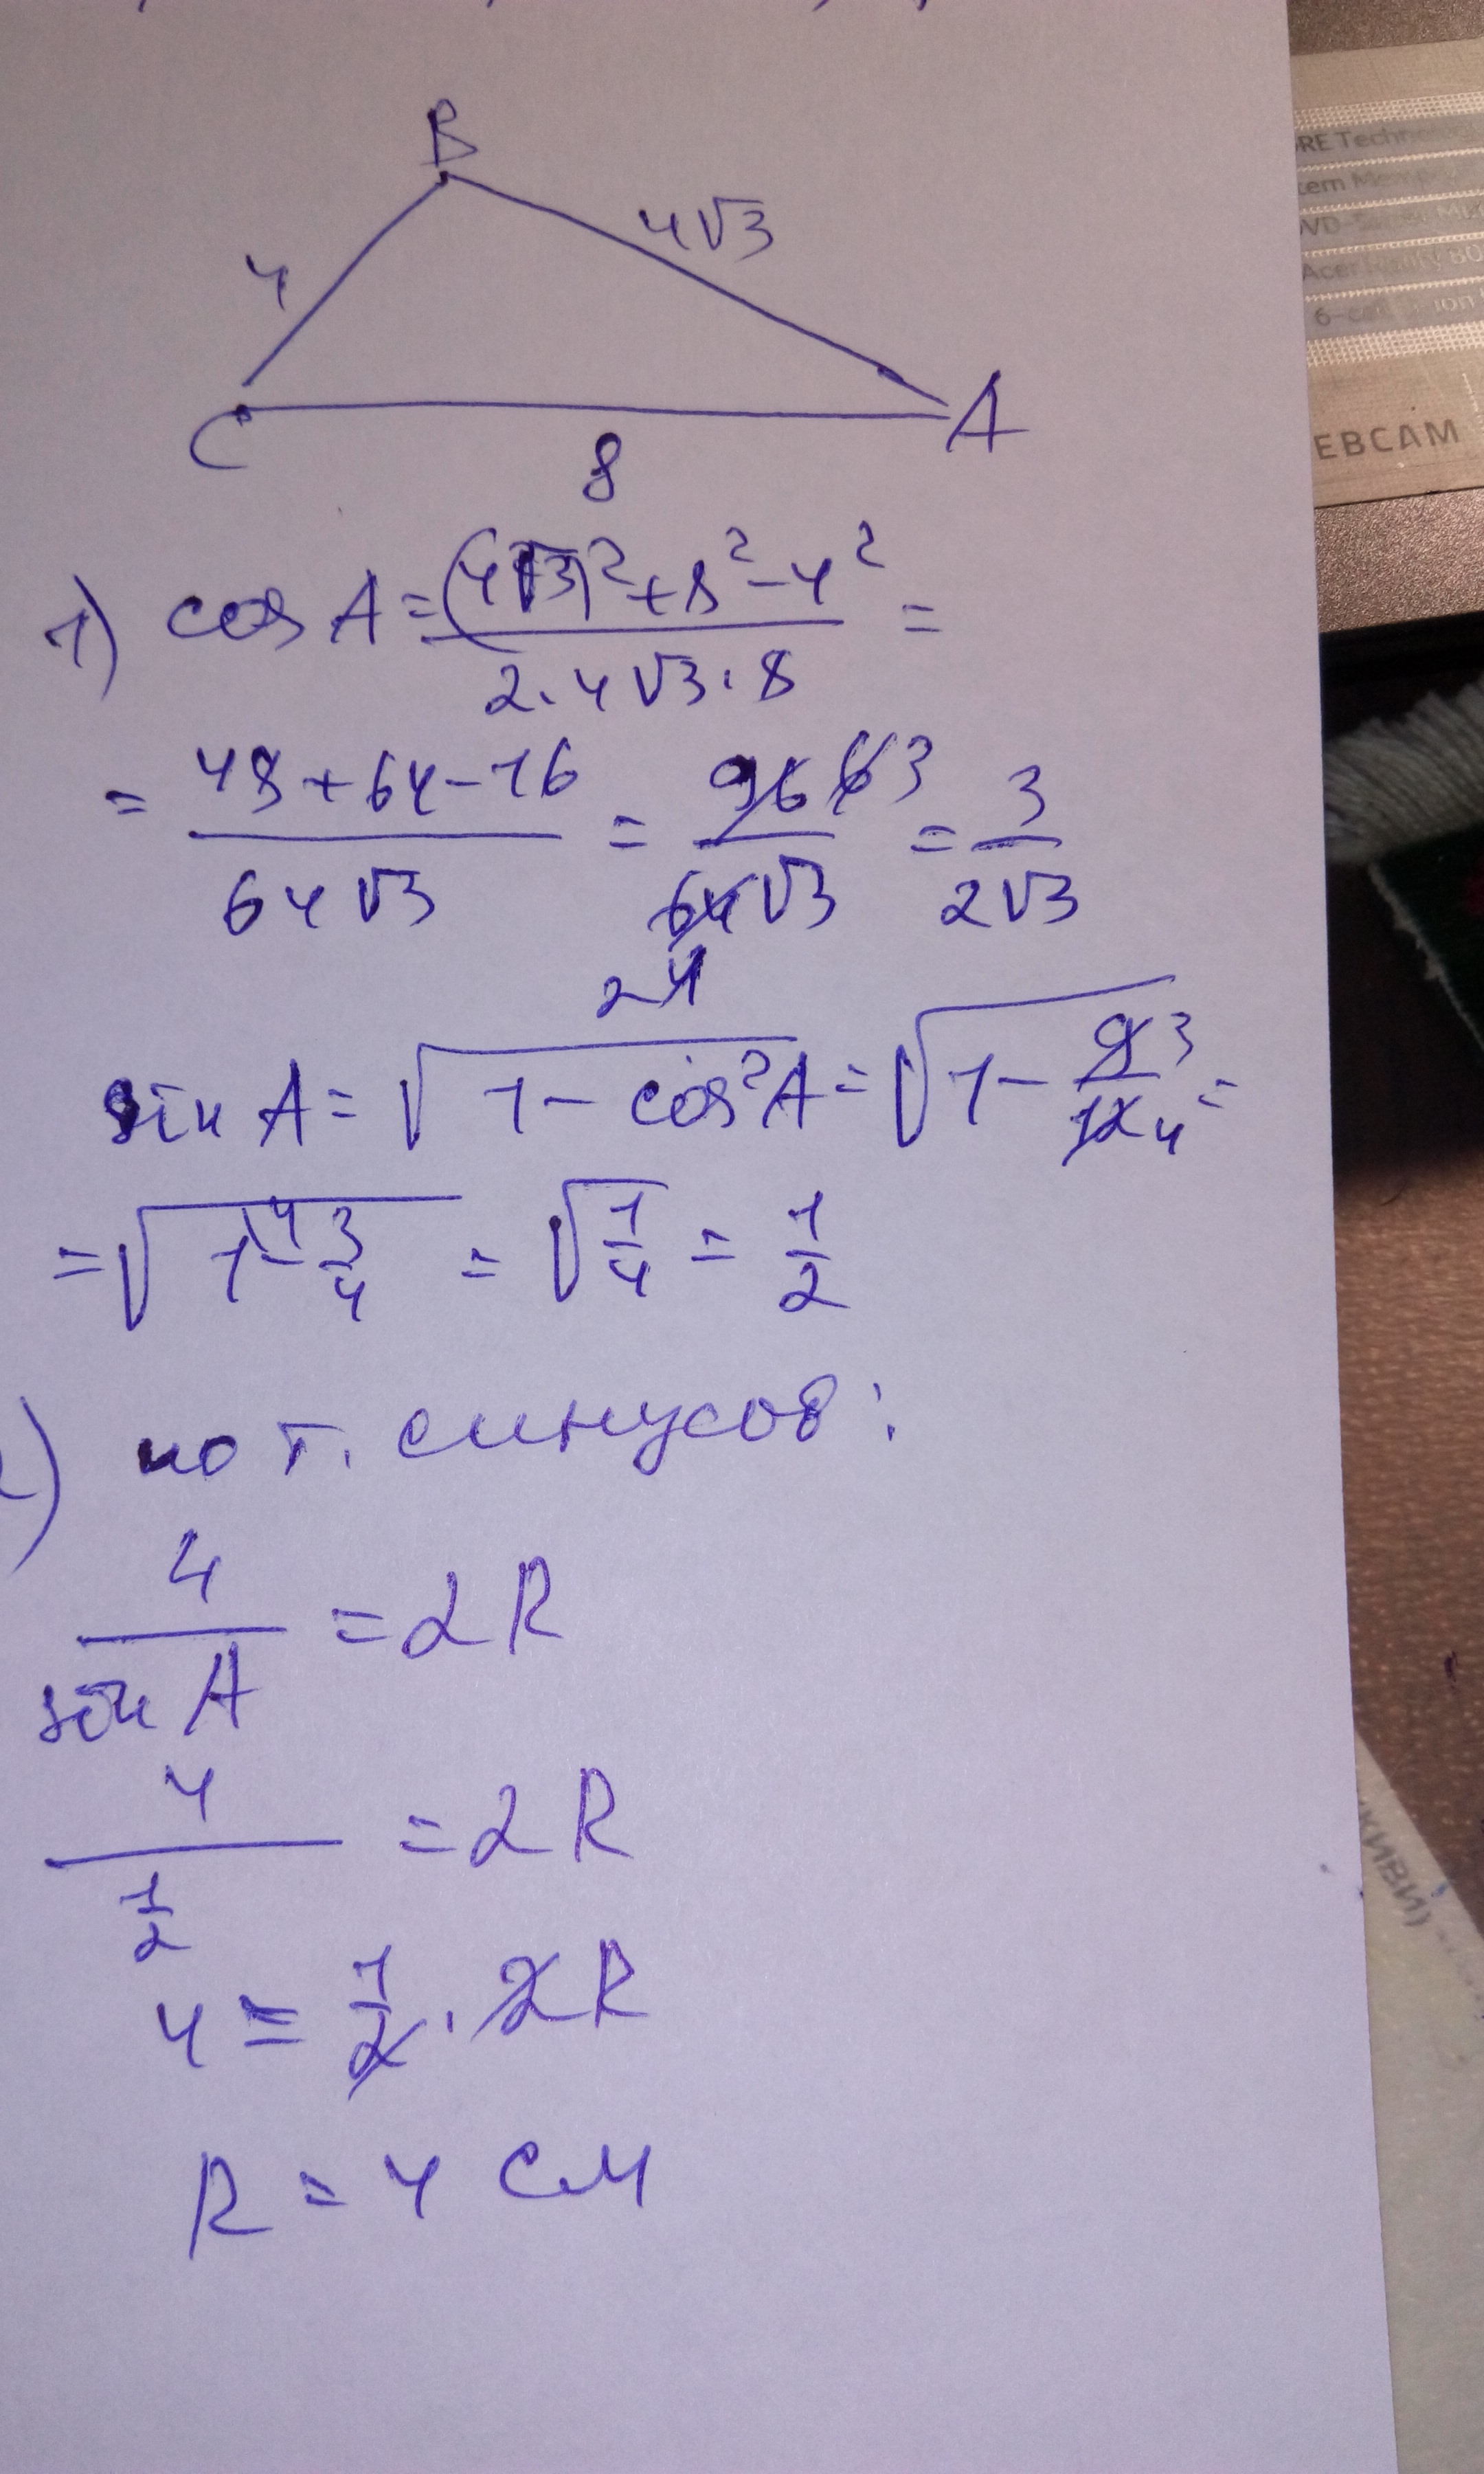 B
4
4√3
C
A
8
1) cos A = (4√3)² + 8² − 4² / 2·4√3·8 =
= 48 + 64 − 16 / 64√3 = 96 6 3 / 64√3 = 3 / 2√3
2 4
sin A = √1 − cos²A = √1 − 9 3 / 12 4 =
= √1 4 − 3/4 = √1/4 = 1/2
) по т. синусов:
4 / sin A = 2R
4 / 1/2 = 2R
4 = 1/2 · 2R
R = 4 см
RE Techno
tem Mem
VD-Su
Acer
6-ce ion
EBCAM
КИВИ)